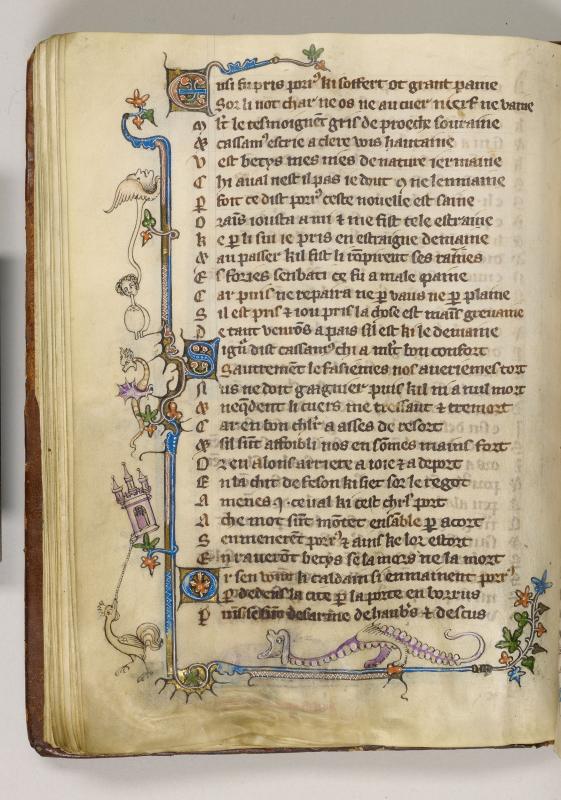 Ensi fu pris porr9 ki soffert ot grant paine
Sor li not char ne os ne au cuer nerf ne vaine
le tesmoignent gris de proeche souraine
& cassam9 escrie a clere vois hautaine
V est betys mes nies de nature iermaine
C hi aual nest il pas ie dout 9 ne lenmaine
P foit ce dist porr9 ceste nouelle est saine
O rains iousta a mi & me fist tele estraine
K e p li sui ie pris en estraigne demaine
& au passer kil fist li ronpirent ses raines
E s fories senbati ce fu a male
C ar puis ne repaira ne p vaus ne p plaine
S il est pris & iou pris la chose est mains greuaine
D e tant venrons a pais sil est ki le demaine
Signur dist cassam9 chi a mlt bon confort
S autrement le fasiemes nos aueriemes tort
N us ne doit gaignier puis kil ni a nul mort
& neqdent li cuers me tressaut & tremort
C ar en bon chlr a asses de resort
& sil sunt affoibli nos en sommes mains fort
O r en alons arriere a ioie & a deport
E n la chit de feson ki siet sor le regort
A menes .i. ceual ki cest chrs port
A che mot sunt montet ensable p acort
S en menerent porr9 & ains ke lor estort
E n raueront betys se la mors ne la mort
Or sen vont li caldain si enmainent porr9
P dedens la cite p la porte en
P desarme de haubs & descus